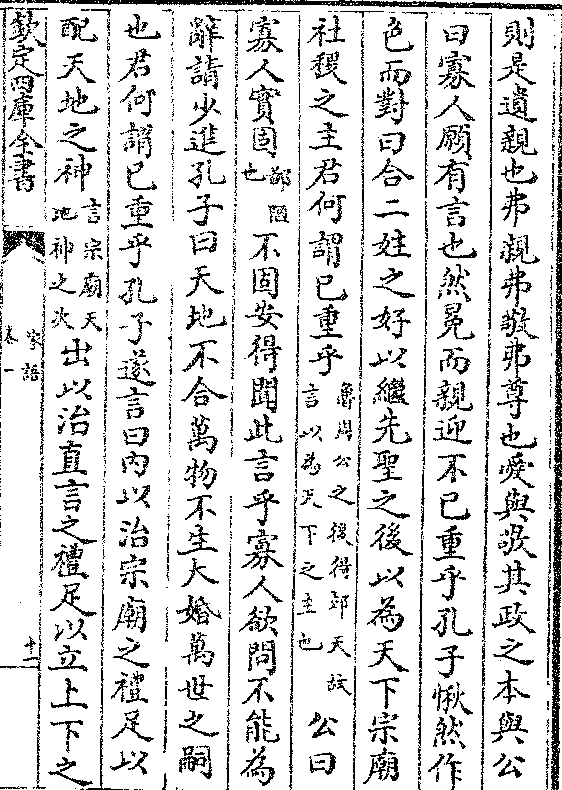 則是遺親也弗親弗敬弗尊也愛與敬其政之本與公
曰寡人願有言也然冕而親迎不已重乎孔子愀然作
色而對曰合二姓之好以繼先聖之後以為天下宗廟
社稷之主君何謂已重乎魯周公之後得郊天故言以為天下之主也公曰
寡人實固鄙陋也不固安得聞此言乎寡人欲問不能為
辭請少進孔子曰天地不合萬物不生大婚萬世之嗣
也君何謂已重乎孔子遂言曰內以治宗廟之禮足以
配天地之神言宗廟天地神之次出以治直言之禮足以立上下之
欽定四庫全書
家語
卷一
十二